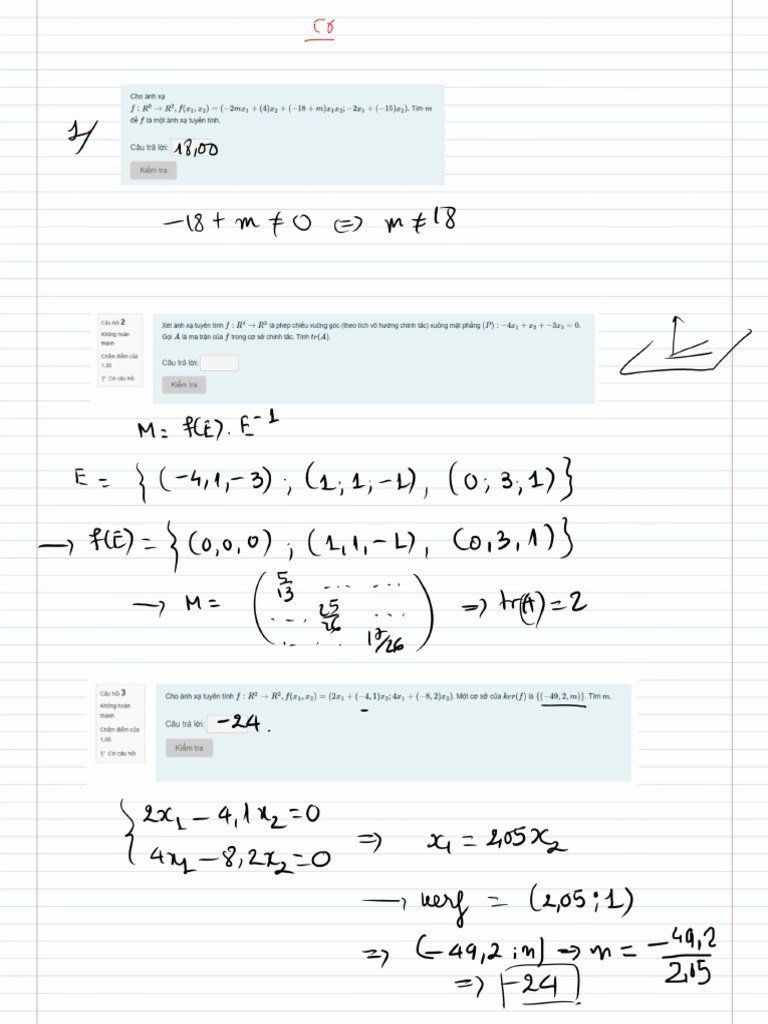 1/
Cho ánh xạ
f : R² → R², f(x₁, x₂) = (−2mx₁ + (4)x₂ + (−18 + m)x₁x₂; −2x₁ + (−15)x₂). Tìm m
để f là một ánh xạ tuyến tính.
Câu trả lời: 18,00
Kiểm tra
−18 + m ≠ 0 ⇔ m ≠ 18
Câu hỏi 2
Không hoàn
thành
Chấm điểm của
1,00
Cờ câu hỏi
Xét ánh xạ tuyến tính f : R³ → R³ là phép chiếu vuông góc (theo tích vô hướng chính tắc) xuống mặt phẳng (P) : −4x₁ + x₂ + −3x₃ = 0.
Gọi A là ma trận của f trong cơ sở chính tắc. Tính tr(A).
Câu trả lời:
Kiểm tra
M = f(E). E⁻¹
E = {(−4,1,−3) ; (1; 1; −1), (0; 3; 1)}
→ f(E) = {(0,0,0) ; (1,1,−1), (0,3,1)}
→ M = ( 5/13 ... ...
... 25/26 ...
... ... 17/26 ) ⇒ tr(A) = 2
Câu hỏi 3
Không hoàn
thành
Chấm điểm của
1,00
Cờ câu hỏi
Cho ánh xạ tuyến tính f : R² → R², f(x₁, x₂) = (2x₁ + (−4, 1)x₂; 4x₁ + (−8, 2)x₂). Một cơ sở của ker(f) là {(−49, 2, m)}. Tìm m.
Câu trả lời: −24.
Kiểm tra
{ 2x₁ − 4,1x₂ = 0
4x₁ − 8,2x₂ = 0 ⇒ x₁ = 2,05x₂
→ kerf = (2,05 ; 1)
⇒ (−49,2 ; m) → m = −49,2/2,05
⇒ −24